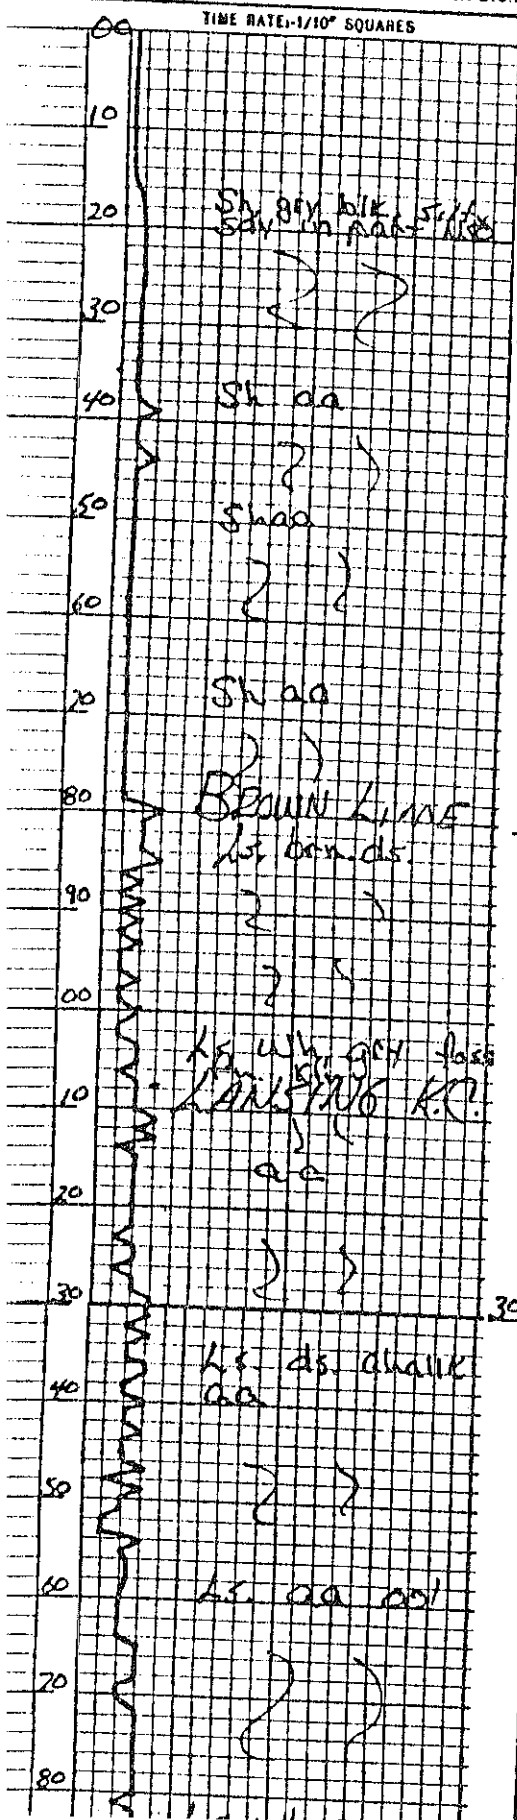 TIME RATE:-1/10" SQUARES
00
10
Sh gry blk, silty
20
sdy in part NSO
30
40 Sh aa
50 Sh aa
60
70 Sh aa
80 BROWN LIME
Ls. brn. ds.
90
00
Ls, wh, gry foss
10 LANSING K.C.
aa
20
30 30
Ls. ds. chalk
40 aa
50
60 Ls. aa ool
70
80